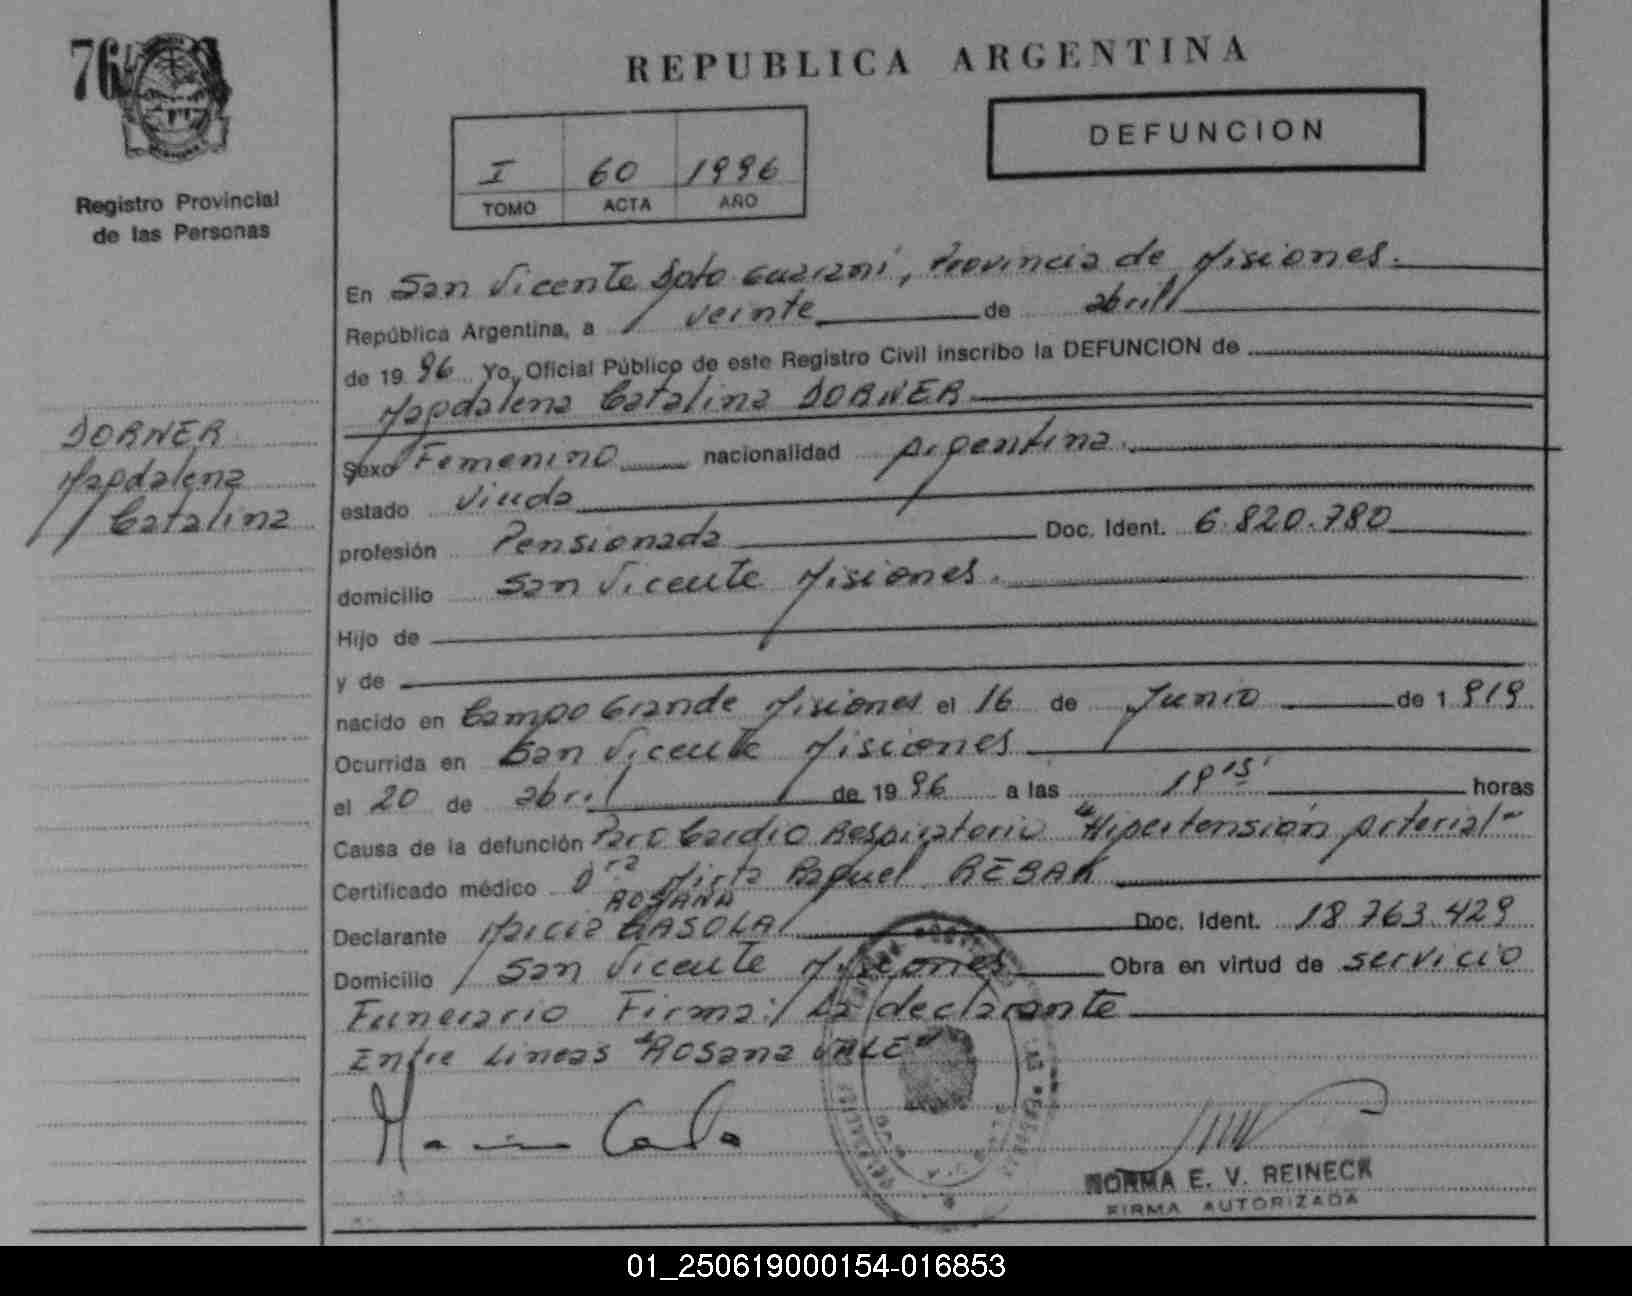 76
REPUBLICA ARGENTINA
I 60 1996
TOMO ACTA AÑO
DEFUNCION
Registro Provincial
de las Personas
DORNER
Magdalena
Catalina
En San Vicente Dpto Guaraní, Provincia de Misiones.
República Argentina, a veinte de abril
de 1996 Yo, Oficial Público de este Registro Civil inscribo la DEFUNCION de
Magdalena Catalina DORNER
Sexo Femenino nacionalidad Argentina.
estado Viuda
profesión Pensionada Doc. Ident. 6.820.780
domicilio San Vicente Misiones.
Hijo de
y de
nacido en Campo Grande Misiones el 16 de Junio de 1919
Ocurrida en San Vicente Misiones
el 20 de abril de 1996 a las horas
Causa de la defunción Paro Cardio Respiratorio "Hipertensión Arterial"
Certificado médico Dra Mirta Raquel
ROSANA
Declarante Maria Doc. Ident. 18.763.429
Domicilio San Vicente Misiones Obra en virtud de servicio
Funerario Firma: La declarante
Entre Lineas "Rosana VALE"
NORMA E. V. REINECK
FIRMA AUTORIZADA
01_250619000154-016853